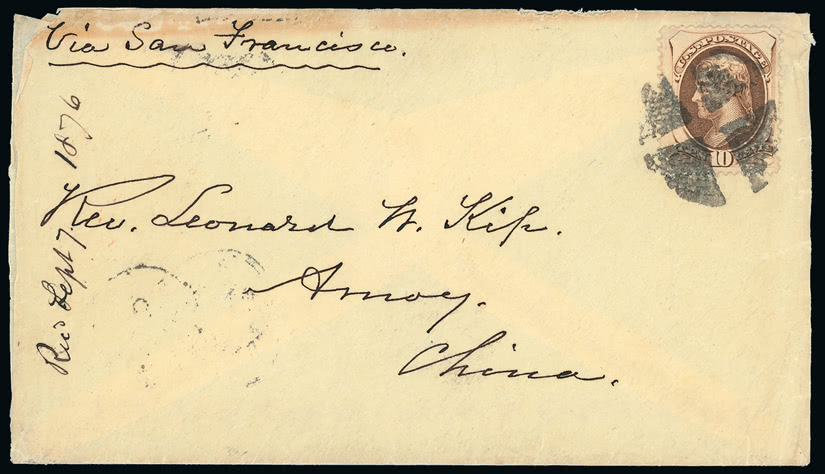 Via San Francisco.
U.S. POSTAGE
10
Rev. Leonard W. Kip.
Amoy.
China.
Rec'd Sept 7 1876